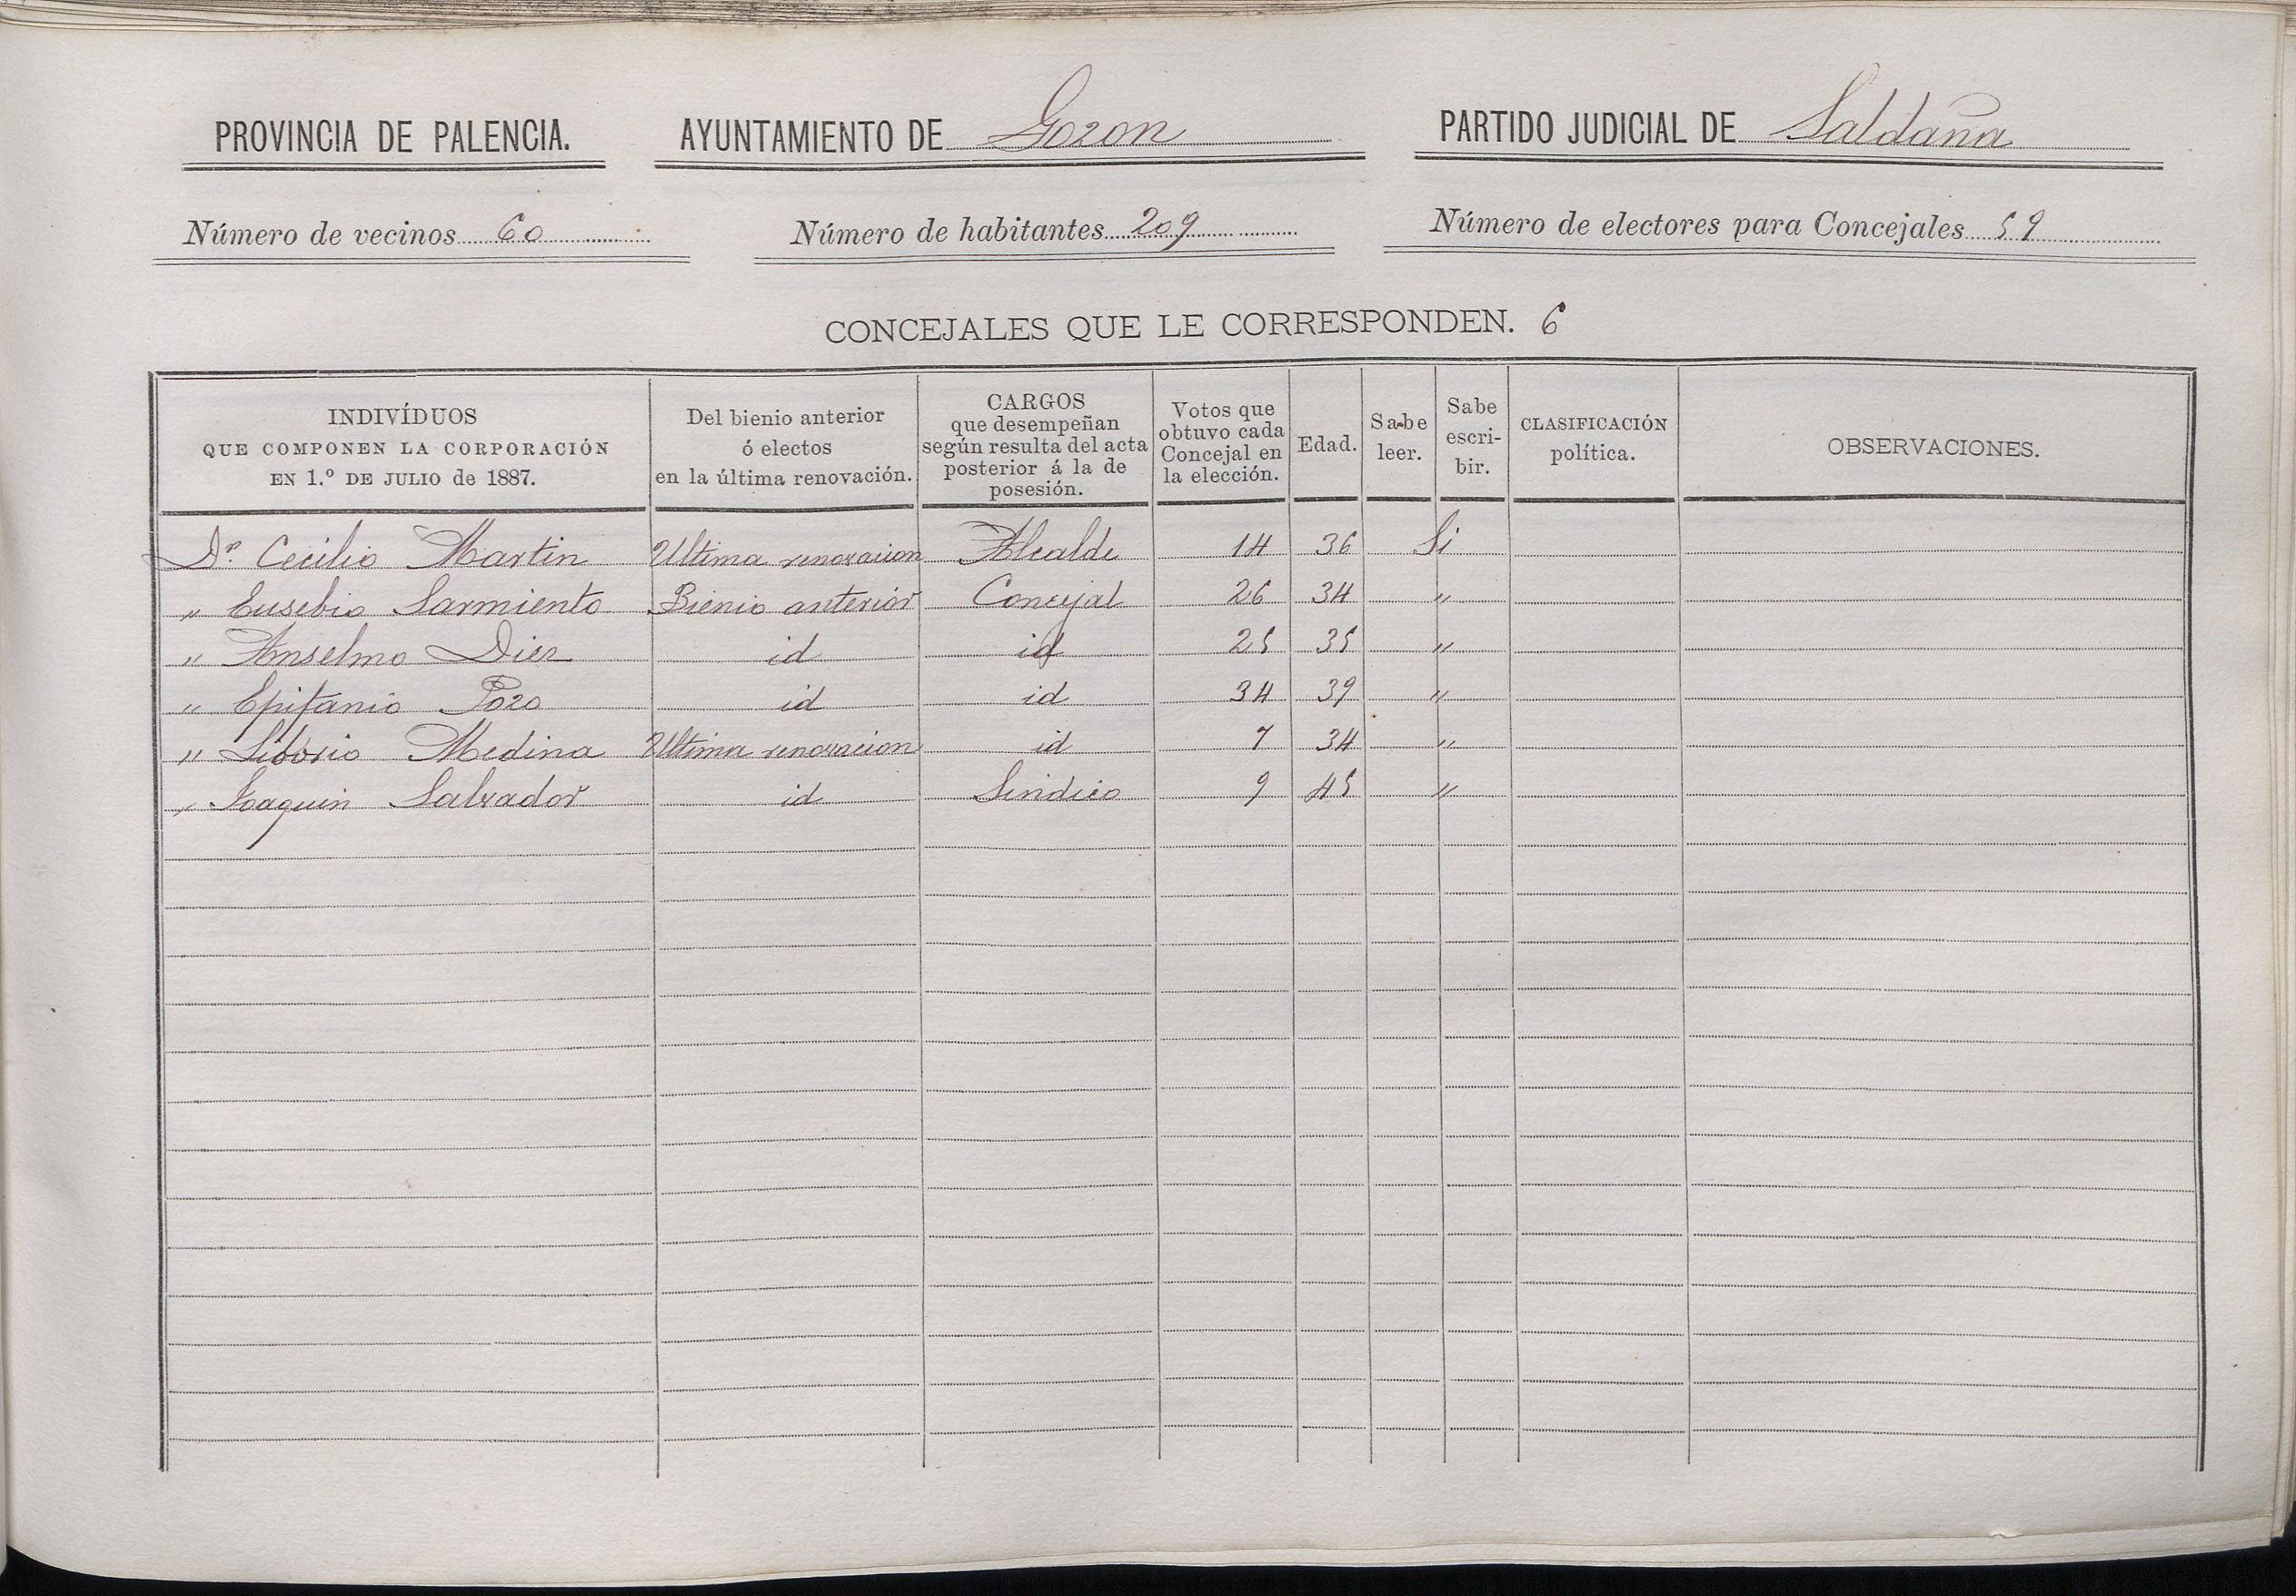 PROVINCIA DE PALENCIA. AYUNTAMIENTO DE Gozon PARTIDO JUDICIAL DE Saldaña
Número de vecinos 60 Número de habitantes 209 Número de electores para Concejales 59
CONCEJALES QUE LE CORRESPONDEN. 6
INDIVÍDUOS
QUE COMPONEN LA CORPORACIÓN
EN 1.º DE JULIO de 1887.
Del bienio anterior
ó electos
en la última renovación.
CARGOS
que desempeñan
según resulta del acta
posterior á la de
posesión.
Votos que
obtuvo cada
Concejal en
la elección.
Edad.
Sabe
leer.
Sabe
escri-
bir.
CLASIFICACIÓN
política.
OBSERVACIONES.
Dn. Cecilio Martin Ultima renovacion Alcalde 14 36 Si
" Eusebio Sarmiento Bienio anterior Concejal 26 34 "
" Anselmo Diez id id 25 35 "
" Epifanio Pozo id id 34 39 "
" Liborio Medina Ultima renovacion id 7 34 "
" Joaquin Salvador id Sindico 9 45 "